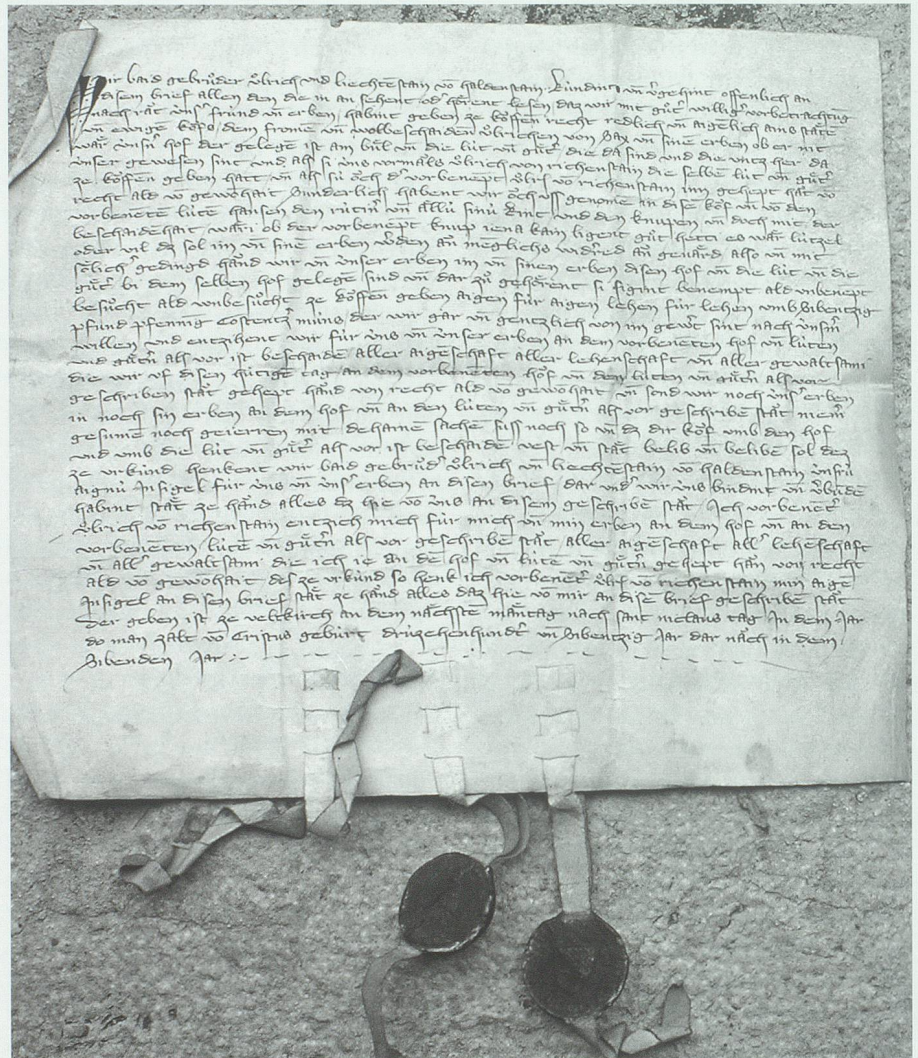 Wir baid gebrüder Ůlrich vnd liechtestain vō haldenstain kündin vn̄ vergehint offenlich an
disem brief allen den die in an sehent od' hörent lesen daz wir mit gůt' willig' vorbetrachtūg
nach rāt vnser fründ vn̄ erben habint geben ze köffen recht redlich vn̄ aigelich ains stāte
vn̄ ewige köfs dem frome vn̄ wolbeschaiden Ůlrichen von Sax vn̄ sine erben ob er nit
wār vnsn̄ hof der gelege ist am bůl vn̄ die lüt vn̄ gůt' die da sind vnd die vntz her da
vnser gewesen sint vnd als si vns vormāls Ůlrich von richenstain die selbe lüt vn̄ gůt'
ze köffen geben hatt vn̄ als sü öch d' vorbenept Ůlr' vō richenstain inn gehept hāt vō
recht ald vō gewohait Sunderlich habent wir öch vss genome an dise köf vn̄ vō den
vorbenete lüte hansen den rütin' vn̄ ällü sinü kint vnd den knupen vn̄ doch mit der
beschaidehait wāri ob der vorbenept knup iena kain ligent gůt hetti es wār lützel
oder vil dz sol im vn̄ sine erben w'den ān meglichs wid'red ān geuārd also vn̄ mit
sölich' gedingd hānd wir vn̄ vnser erben im vn̄ sinen erben disen hof vn̄ die lüt vn̄ die
gůt' bi dem selben hof gelege sind vn̄ dar zů gehörent si sigint benempt ald vnbenept
besůcht ald vnbesůcht ze köffen geben aigen für aigen lehen für lehen vmb Sibentzig
pfund pfennig Costentz' müns der wir gar vn̄ gentzlich von im gew't sint nach vnsm̄
willen vnd entzihent wir für vns vn̄ vnser erben an dem vorbeneten hof vn̄ lüten
vnd gůtn̄ als vor ist beschaide aller aigeschaft aller lehenschaft vn̄ aller gewaltsami
die wir vf disen hütige tag an dem vorbeneten hof vn̄ den lüten vn̄ gůtn̄ als vor
geschriben stāt gehept hānd von recht ald vō gewohait vn̄ sond wir noch vns' erben
in noch sin erben an dem hof vn̄ an den lüten vn̄ gůtn̄ als vor geschribe stāt niem'
gesume noch geierren mit dehaine sache suss noch so vn̄ dz dir köf vmb den hof
vnd vmb die lüt vn̄ gůt' als vor ist beschaide vest vn̄ stāt belib vn̄ belibe sol dez
ze vrkünd henkent wir baid gebrüd' Ůlrich vn̄ liechtestain vō haldenstain vnsrü
aignü Insigel für vns vn̄ vns' erben an disen brief dar vnd' wir vns bindint vn̄ v'būde
habint stāt ze hānd alles dz hie vō vns an disem geschribe stāt Ich vorbenet'
Ůlrich vō richenstain entzich mich für mich vn̄ min erben an dem hof vn̄ an den
vorbeneten lüte vn̄ gůtn̄ als vor geschribe stāt aller aigeschaft all' leheschaft
vn̄ all' gewaltsami die ich ie an de hof vn̄ lüte vn̄ gůtn̄ gehept hān von recht
ald vō gewohait des ze vrkünd so henk ich vorbenet' Ůlr' vō richenstain min aige
Insigel an disen brief stāt ze hānd alles daz hie vō mir an dise brief geschribe stāt
Der geben ist ze veltkirch an dem nāchste māntag nach sant niclaus tag In dem Jar
do man zalt vō Cristus gebürt drüzehenhundt' vn̄ Sibentzig Jar dar nāch in dem
Sibenden Jar